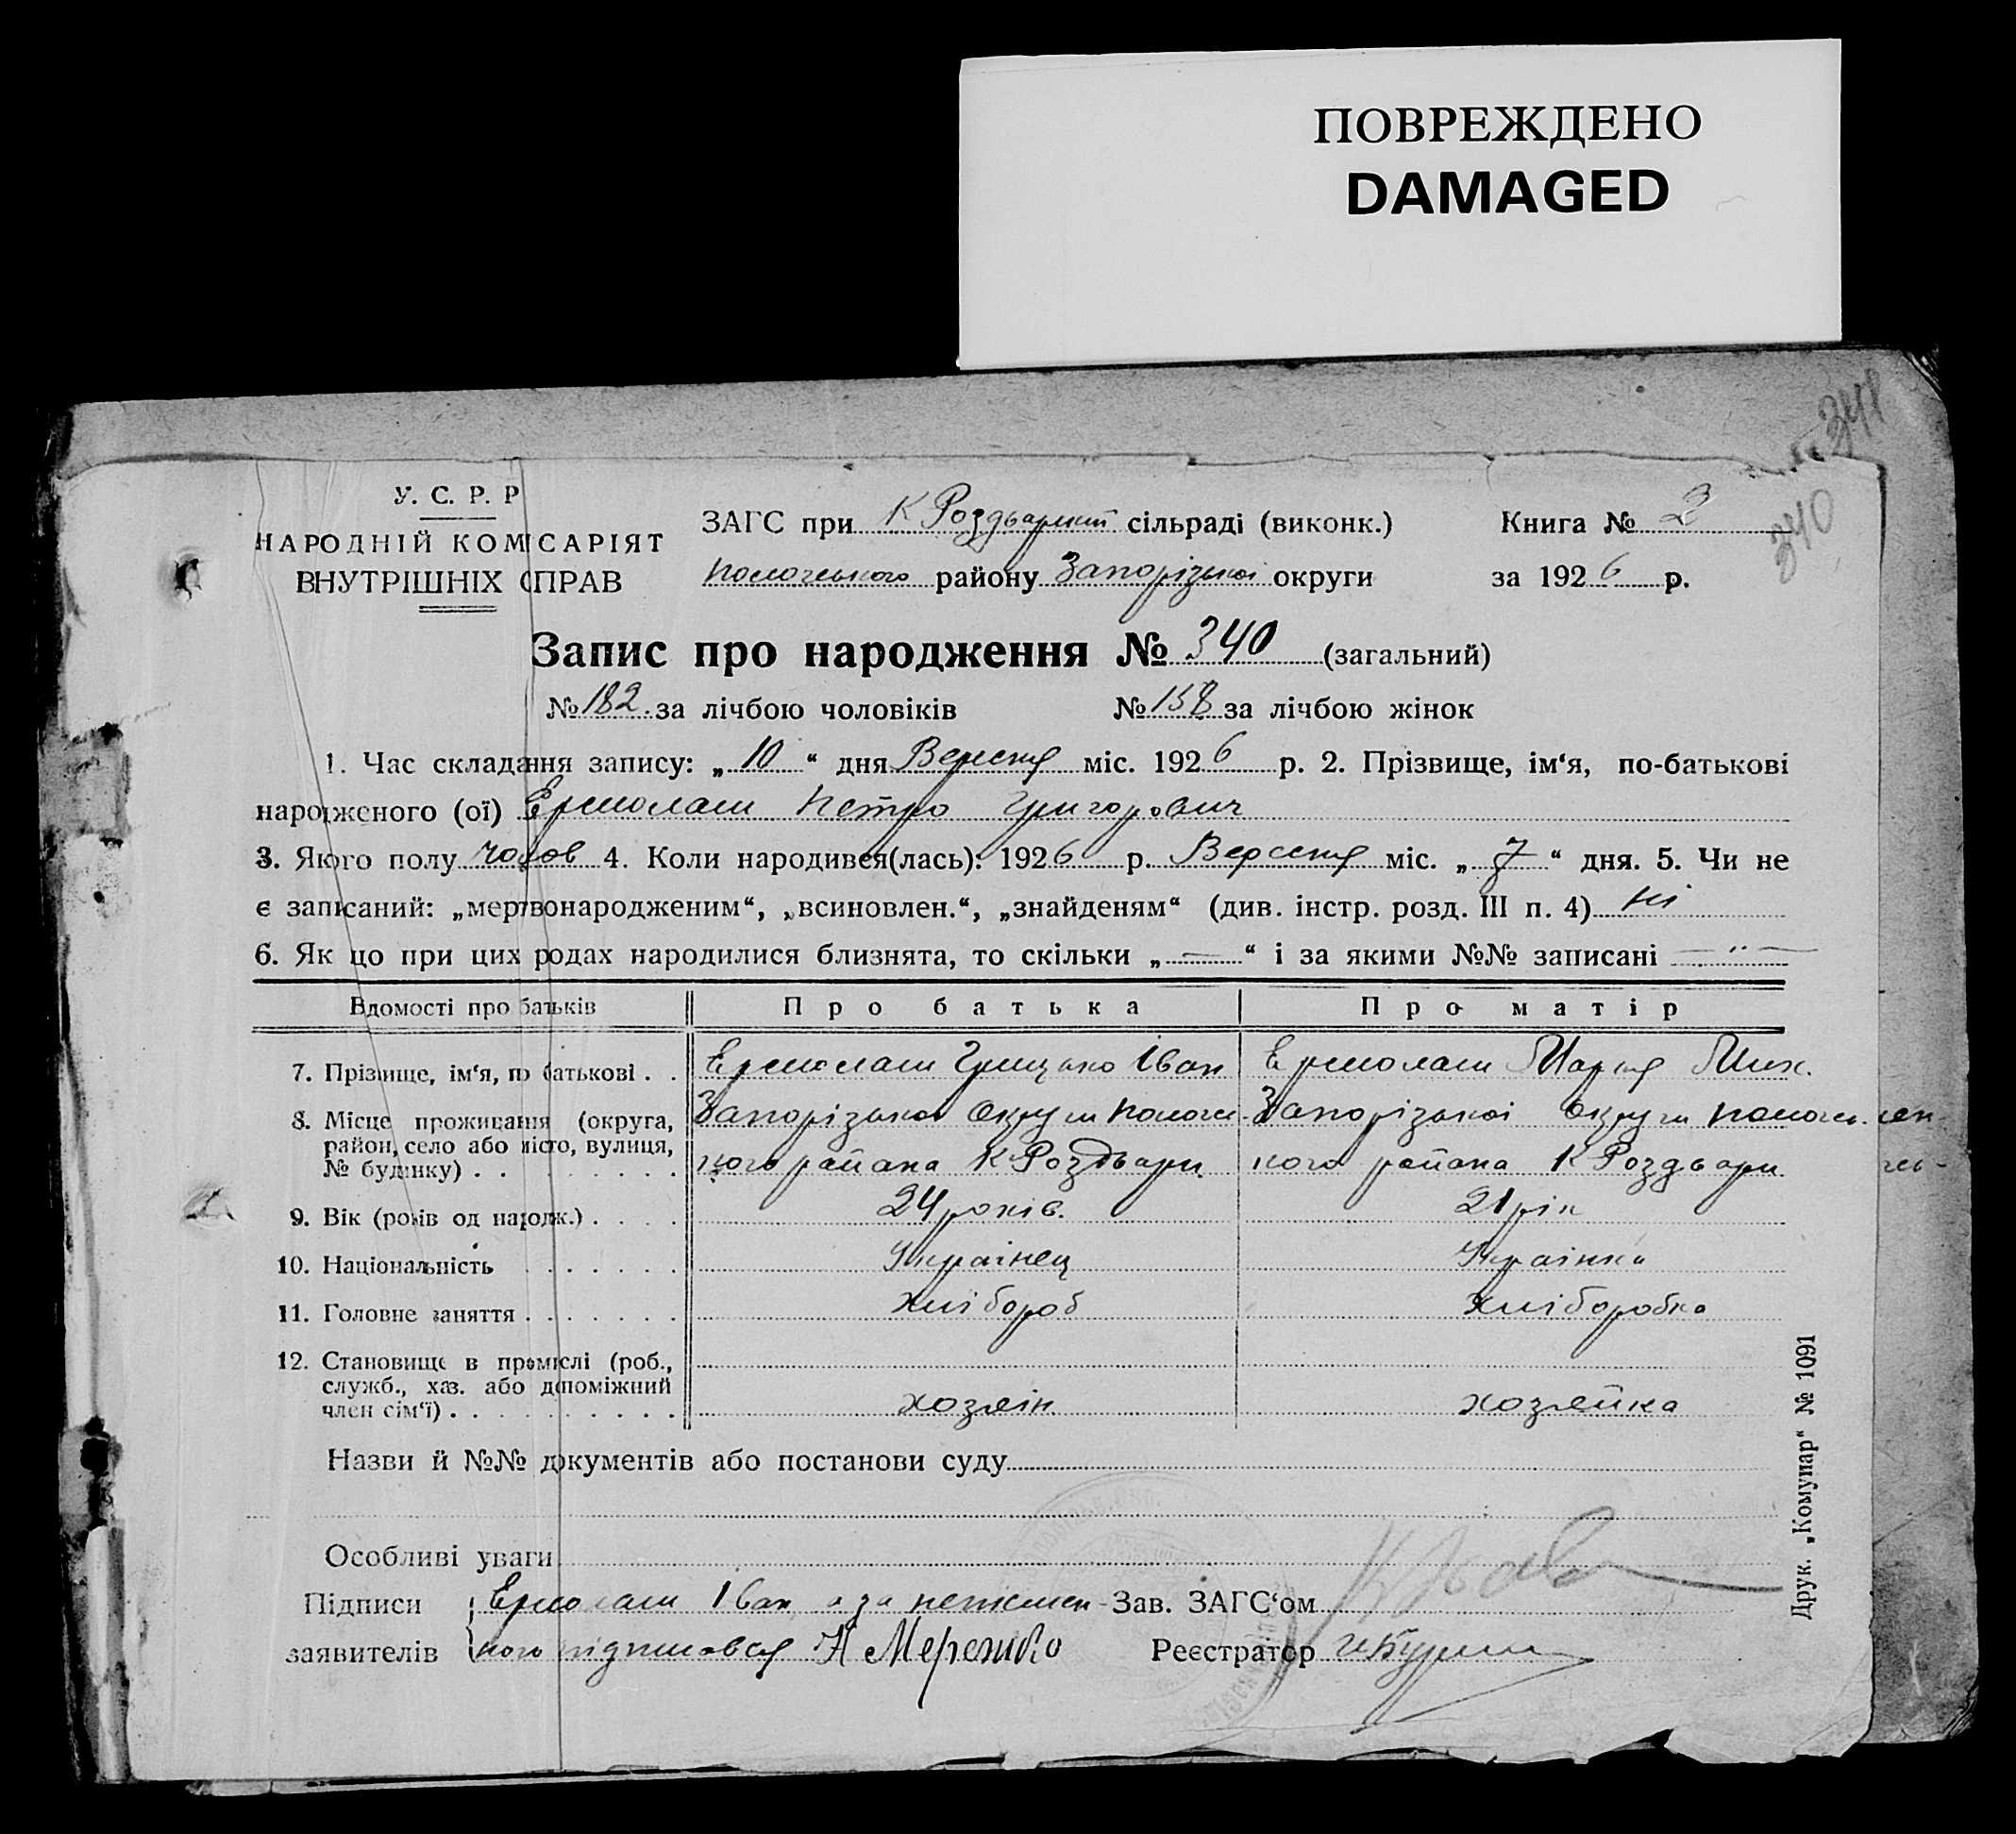 ПОВРЕЖДЕНО
DAMAGED
341
340
У. С. Р. Р
НАРОДНІЙ КОМІСАРІЯТ
ВНУТРІШНІХ СПРАВ
ЗАГС при К Роздварит сільраді (виконк.) Книга № 2
пологського району Запорізької округи за 1926 р.
Запис про народження № 340 (загальний)
№ 182 за лічбою чоловіків № 158 за лічбою жінок
1. Час складання запису: „ 10 “ дня Вересня міс. 1926 р. 2. Прізвище, ім‘я, по-батькові
народженого (ої) Ермолаш Петро Григорович
3. Якого полу чолов 4. Коли народився(лась): 1926 р. Вересня міс. „ 7 “ дня. 5. Чи не
є записаний: „мертвонародженим“, „всиновлен.“, „знайденям“ (див. інстр. розд. III п. 4) ні
6. Якщо при цих родах народилися близнята, то скільки „ — “ і за якими №№ записані — " —
Відомості про батьків Про батька Про матір
7. Прізвище, ім‘я, по батькові . . Ермолаш Грицько Іван Ермолаш Мария Мих.
8. Місце проживання (округа, район, село або місто, вулиця, № будинку) . . Запорізької Округи пологсь- Запорізької Округи пологсь-
кого района К Роздвари кого района К Роздвари
9. Вік (років од народж.) . . . . 24 років. 21 рік
10. Національність . . . . . . . Українец Українка
11. Головне заняття . . . . . . . Хлібороб Хліборобка
12. Становище в промислі (роб.,
служб., хаз. або допоміжний
член сім‘ї) . . . . . . . . . . хозяін хозяйка
Назви й №№ документів або постанови суду
Особливі уваги
Підписи Ермолаш Іван а за неписмен- Зав. ЗАГС‘ом
заявителів ного підписався Н Мережко Реєстратор
Друк. „Комунар“ № 1091